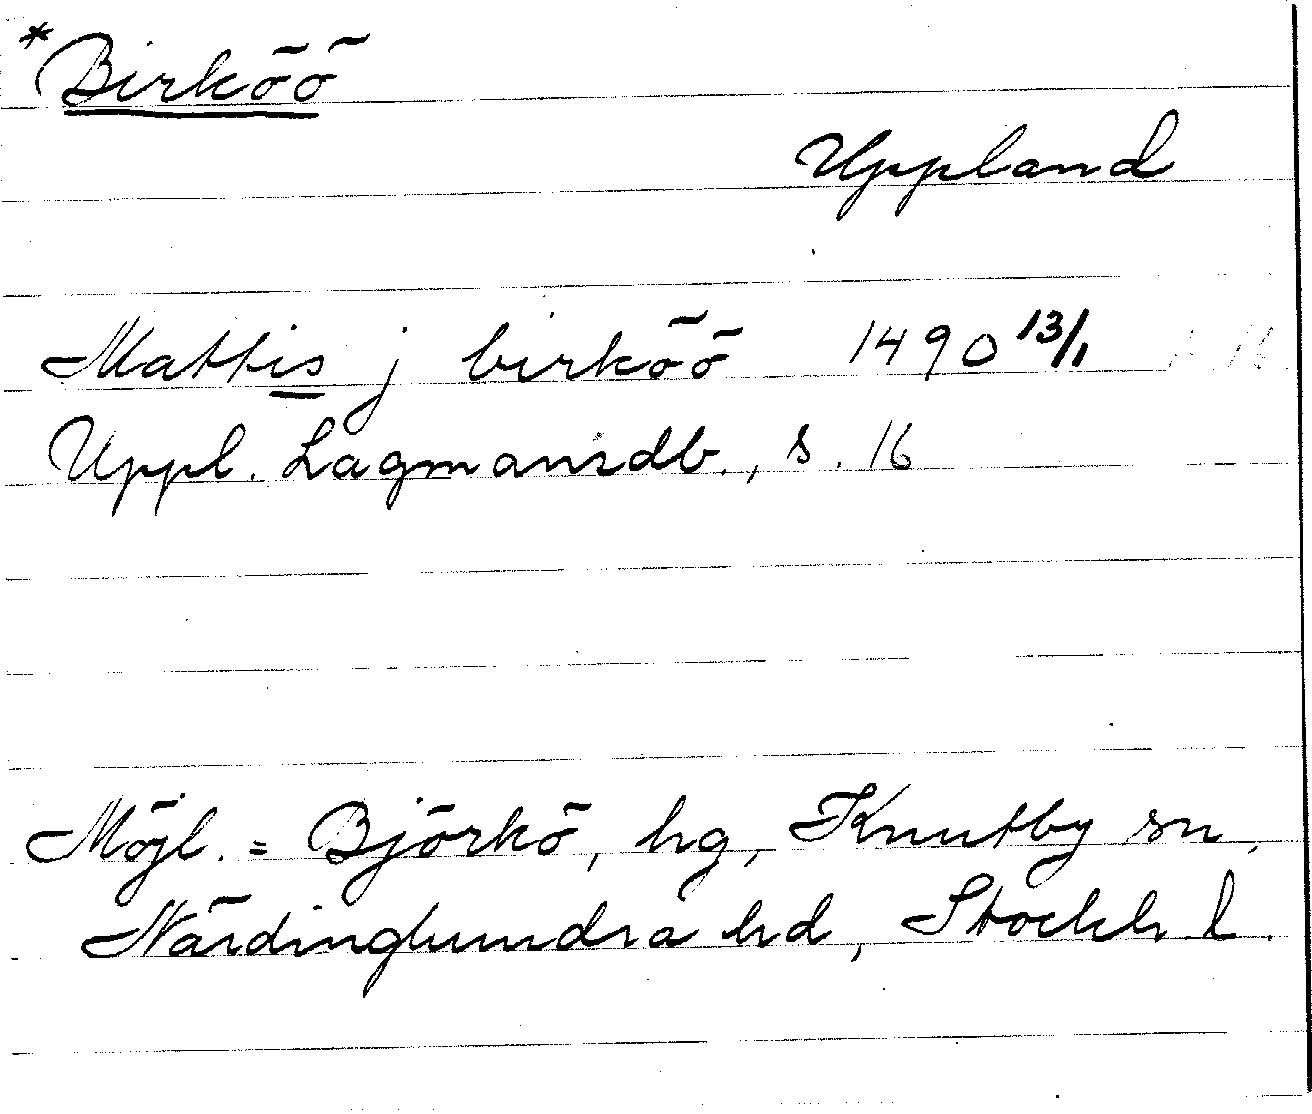 *Birköö
Uppland
Mattis j birköö 1490 13/1
Uppl. Lagmansdb., s. 16
Möjl. = Björkö, hg, Knutby sn,
Närdinghundra hd, Stockh. l.